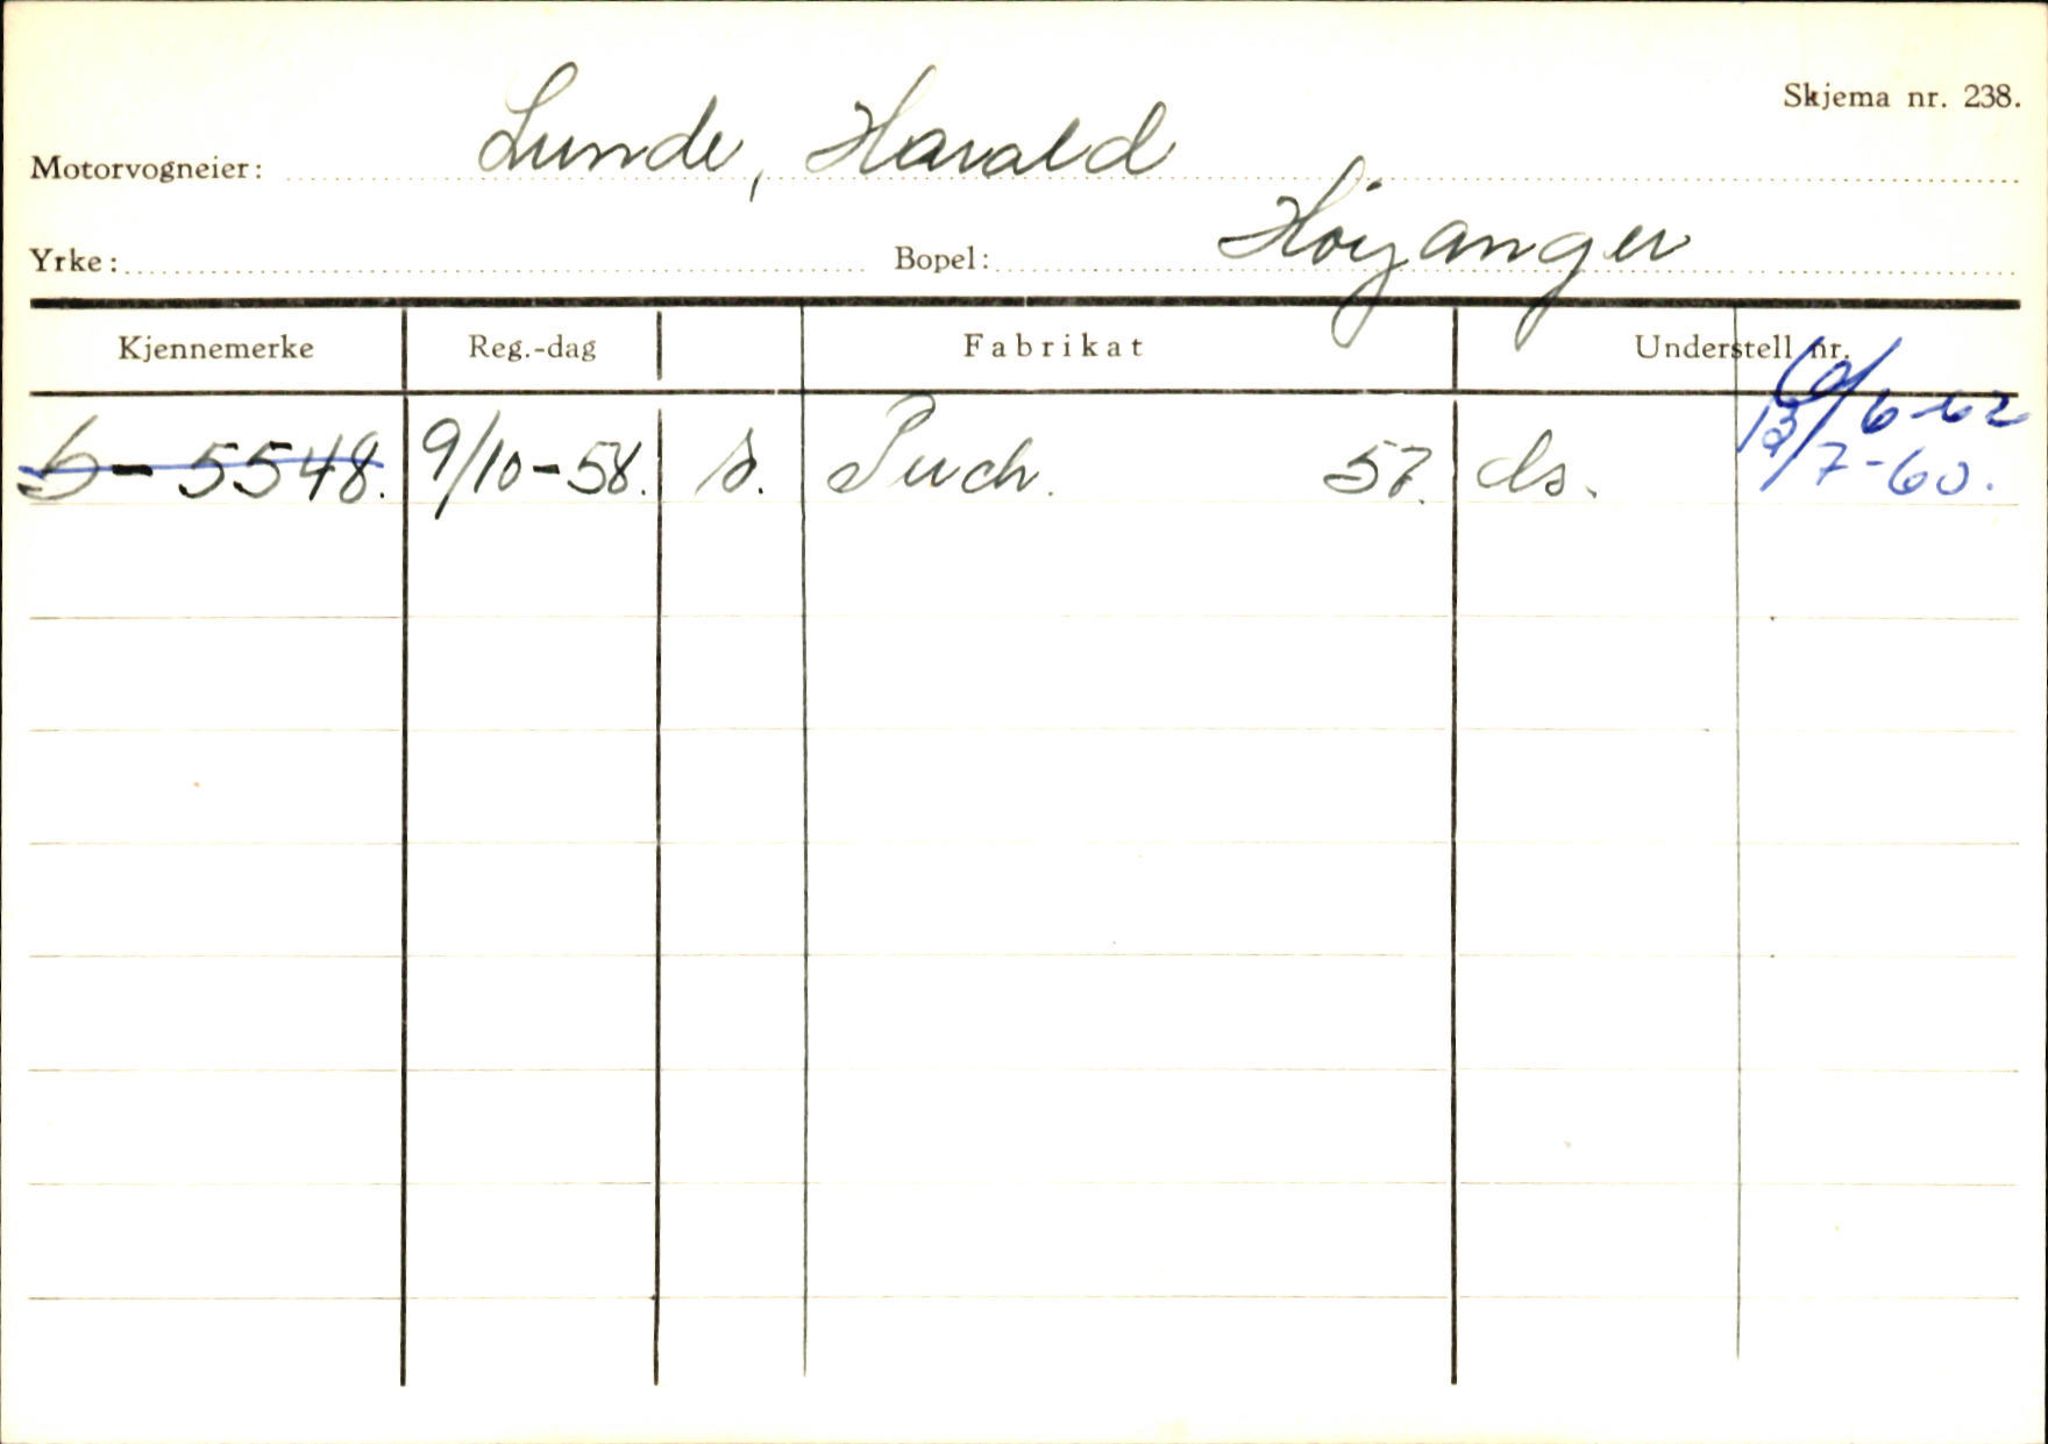 Skjema nr. 238.
Motorvogneier: Lunde, Harald
Yrke: Bopel: Höyanger
Kjennemerke Reg.-dag Fabrikat Understell nr.
S-5548. 9/10-58. s. Puch. 57. ds.
/6-62
/7-60.